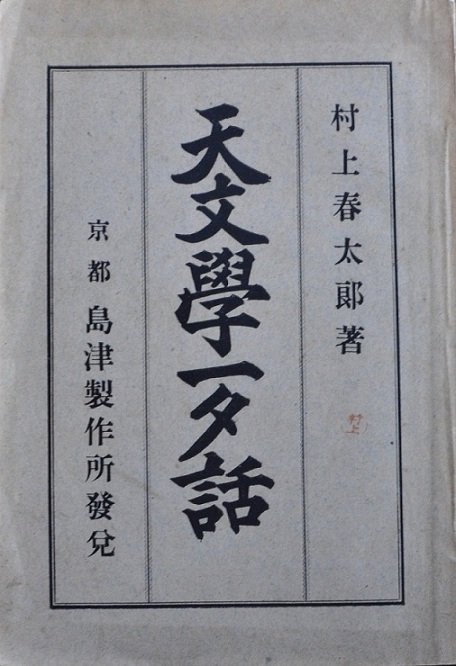 村上春太郎著
村上
天文學一夕話
京都 島津製作所發兌